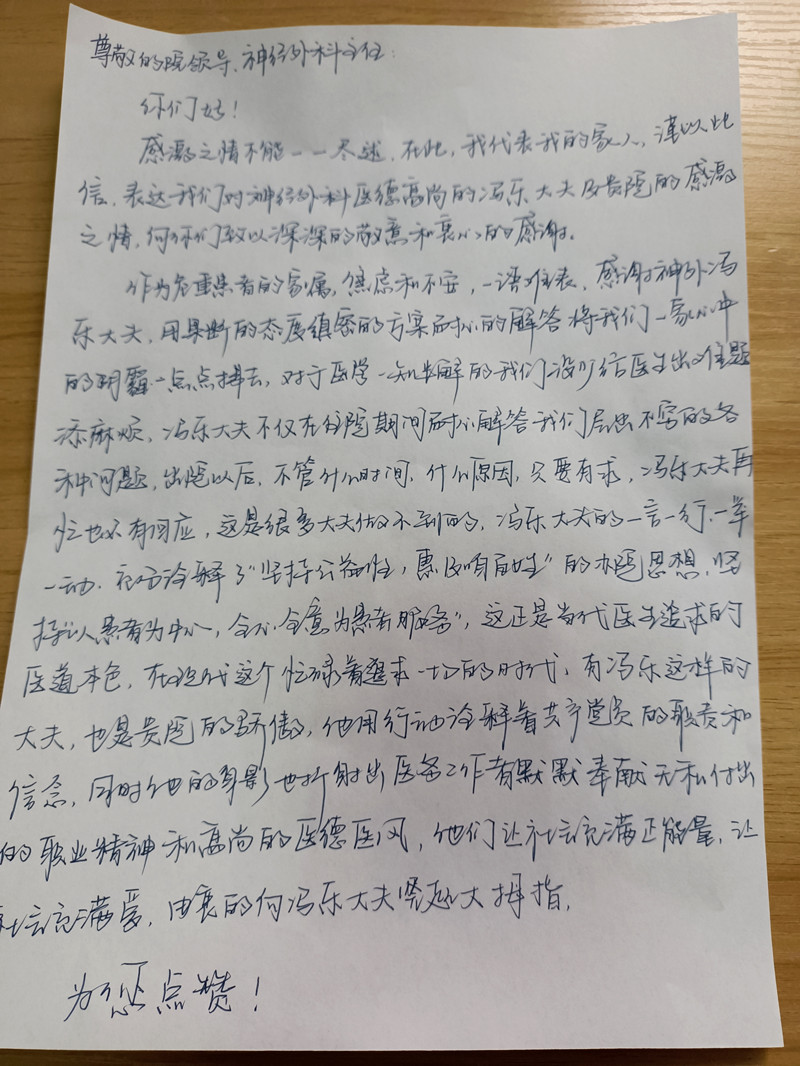 尊敬的院领导、神经外科主任:
你们好!
感激之情不能一一尽述,在此,我代表我的家人,谨以此
信,表达我们对神经外科医德高尚的冯乐大夫及贵院的感激
之情,向你们致以深深的敬意和衷心的感谢。
作为危重患者的家属,焦虑和不安,一语难表,感谢神外冯
乐大夫,用果断的态度缜密的方案耐心的解答将我们一家心中
的阴霾一点点掃去,对于医学一知半解的我们没少给医生出难题
添麻烦,冯乐大夫不仅在住院期间耐心解答我们层出不穷的各
种问题,出院以后,不管什么时间,什么原因,只要有求,冯乐大夫再
忙也必有回应,这是很多大夫做不到的,冯乐大夫的一言一行、一举
一动,诠释了“坚持公益性,惠及咱百姓”的办院思想,坚
持“以患者为中心,全心全意为患者服务”,这正是当代医生追求的
医道本色,在现代这个忙碌着追求一切的时代,有冯乐这样的
大夫,也是贵院的骄傲,他用行动诠释着共产党员的职责和
信念,同时他的身影也折射出医务工作者默默奉献无私付出
的职业精神和高尚的医德医风,他们让社会充满正能量,让
社会充满爱,由衷的向冯乐大夫竖起大拇指,
为您点赞!